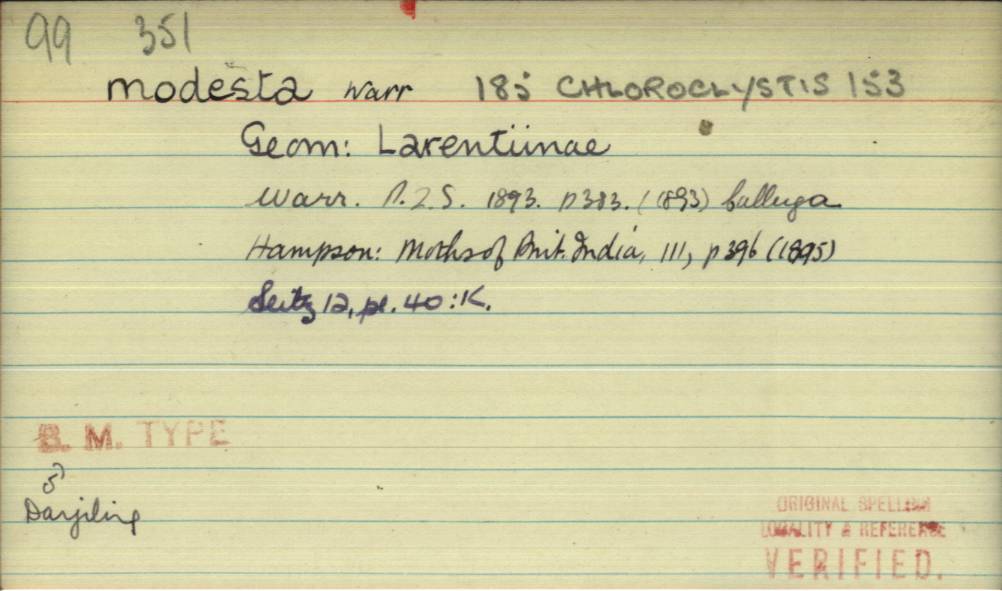 99 351
modesta Warr 185 CHLOROCLYSTIS 153
Geom: Larentiinae
Warr. P.Z.S. 1893. p383. (1893) Calluga
Hampson: Moths of Brit. India, III, p396 (1895)
Seitz 12, pl. 40:K.
B. M. TYPE
♂
Darjiling
ORIGINAL SPELLING
LOCALITY & REFERENCE
VERIFIED.